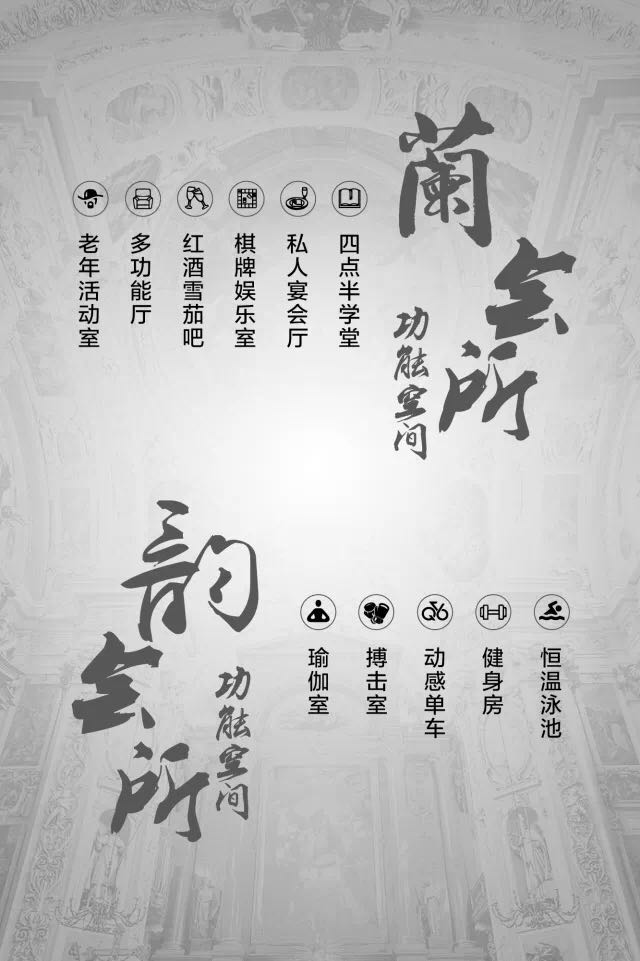 蘭会所
功能空间
四点半学堂
私人宴会厅
棋牌娱乐室
红酒雪茄吧
多功能厅
老年活动室
韵会所
功能空间
恒温泳池
健身房
动感单车
搏击室
瑜伽室